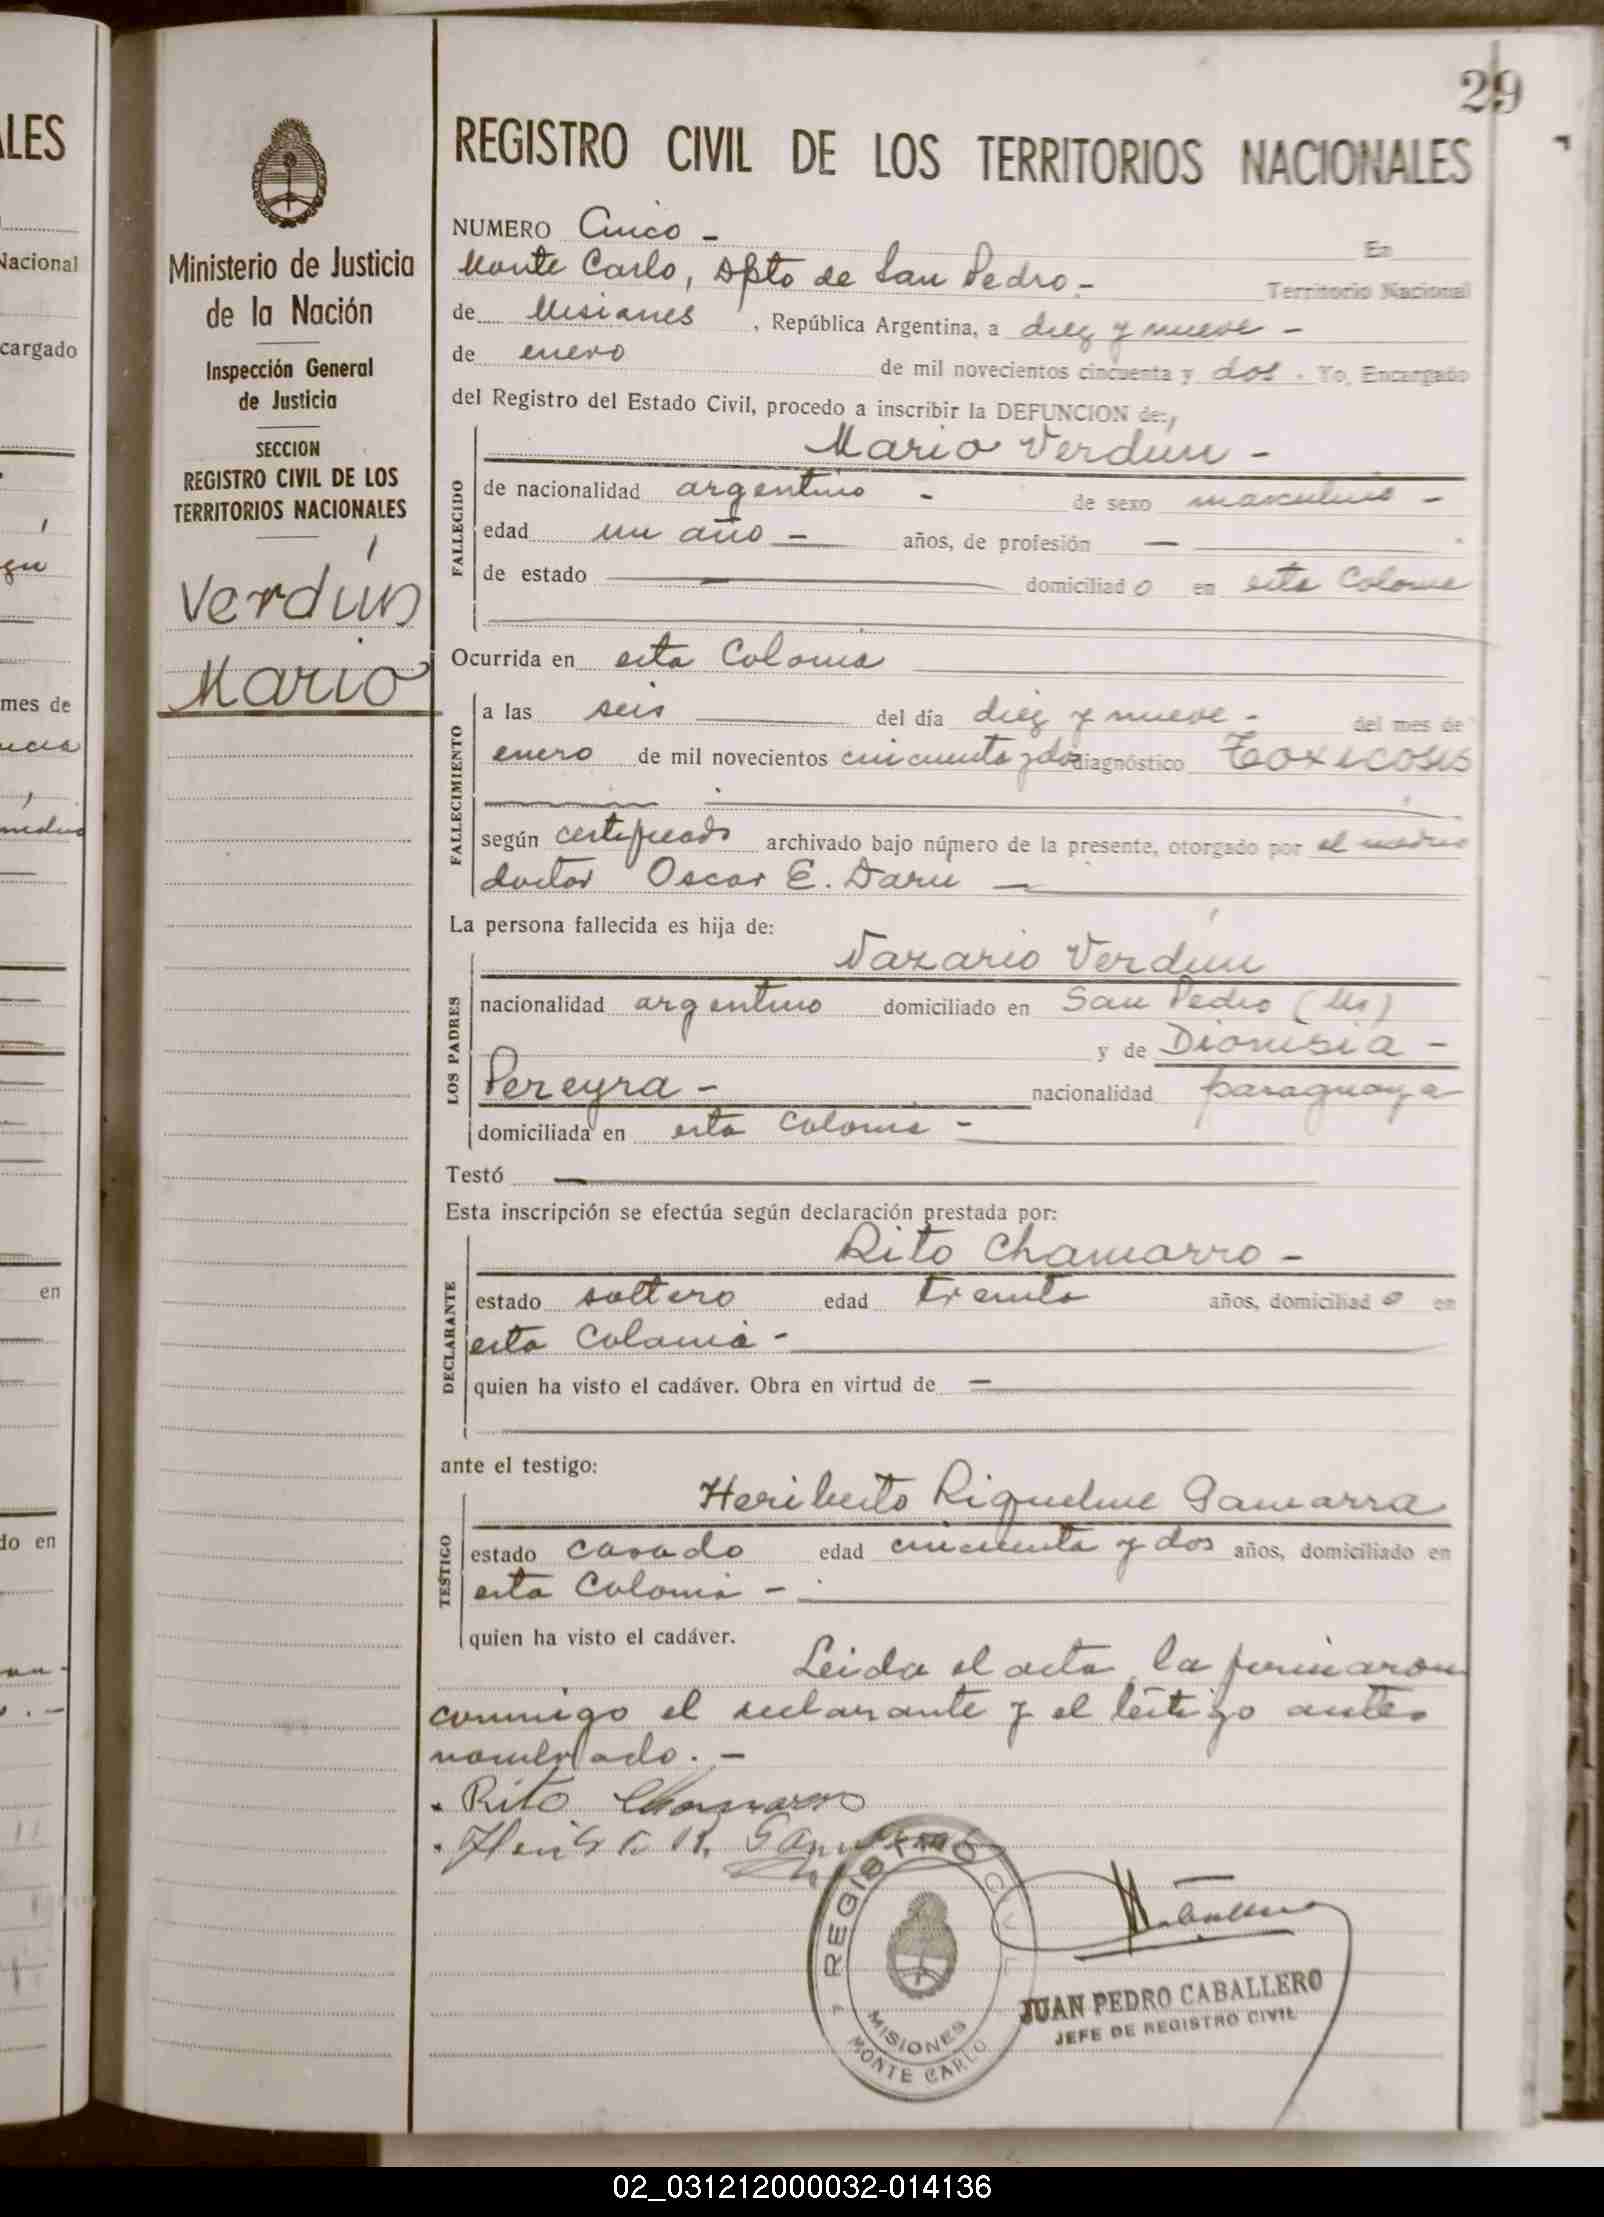 29
REGISTRO CIVIL DE LOS TERRITORIOS NACIONALES
Ministerio de Justicia
de la Nación
Inspección General
de Justicia
SECCION
REGISTRO CIVIL DE LOS
TERRITORIOS NACIONALES
Verdún
Mario
NUMERO Cinco - En
Monte Carlo, Dpto de San Pedro - Territorio Nacional
de Misiones, República Argentina, a diez y nueve -
de enero de mil novecientos cincuenta y dos. Yo, Encargado
del Registro del Estado Civil, procedo a inscribir la DEFUNCION de:
Mario Verdún -
FALLECIDO
de nacionalidad argentino - de sexo masculino -
edad un año - años, de profesión -
de estado - domiciliado en esta Colonia
Ocurrida en esta Colonia
FALLECIMIENTO
a las seis del día diez y nueve - del mes de
enero de mil novecientos cincuenta y dos diagnóstico Toxicosis
según certificado archivado bajo número de la presente, otorgado por el medico
doctor Oscar E. Daru -
La persona fallecida es hija de:
LOS PADRES
Nazario Verdún
nacionalidad argentino domiciliado en San Pedro (Ms)
y de Dionisia -
Pereyra - nacionalidad paraguaya
domiciliada en esta Colonia -
Testó -
Esta inscripción se efectúa según declaración prestada por:
DECLARANTE
Rito Chamarro -
estado soltero edad treinta años, domiciliado en
esta Colonia -
quien ha visto el cadáver. Obra en virtud de -
ante el testigo:
TESTIGO
Heriberto Riquelme Gamarra
estado casado edad cincuenta y dos años, domiciliado en
esta Colonia -
quien ha visto el cadáver.
Leida el acta la firmaron
conmigo el declarante y el testigo antes
nombrado. -
Rito Chamarro
REGISTRO CIVIL
MISIONES
MONTE CARLO
JUAN PEDRO CABALLERO
JEFE DE REGISTRO CIVIL
ALES
Nacional
cargado
mes de
en
do en
02_031212000032-014136